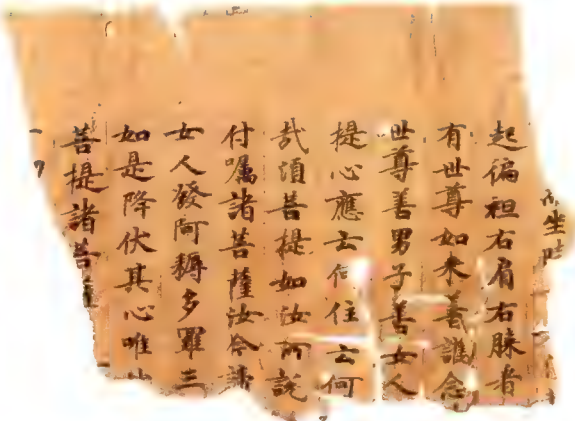 而坐時
起徧袒右肩右膝著
有世尊如来善護念
世尊善男子善女人
提心應云何住云何
哉須菩提如汝所說
付嘱諸菩薩汝今諦
女人發阿耨多羅三
如是降伏其心唯
菩提諸菩薩
一